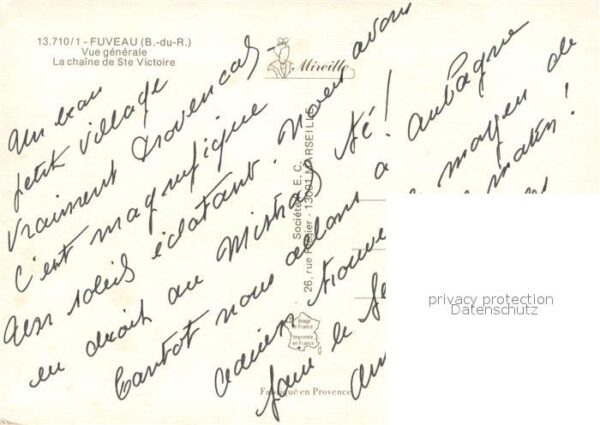 13.710/1 - FUVEAU (B.-du-R.)
Vue générale
La chaîne de Ste Victoire
Mireille
Un beau
petit village
vraiment Provençal -
C'est magnifique
Un soleil éclatant. Nous avons
eu droit au Mistral
été!
Tantôt nous allons à Aubagne
moyen de
matin!
faire le
Société E. C.
26, rue 13001 MARSEILLE
Image de France
Imprimée en France
Fabriqué en Provence
privacy protection
Datenschutz